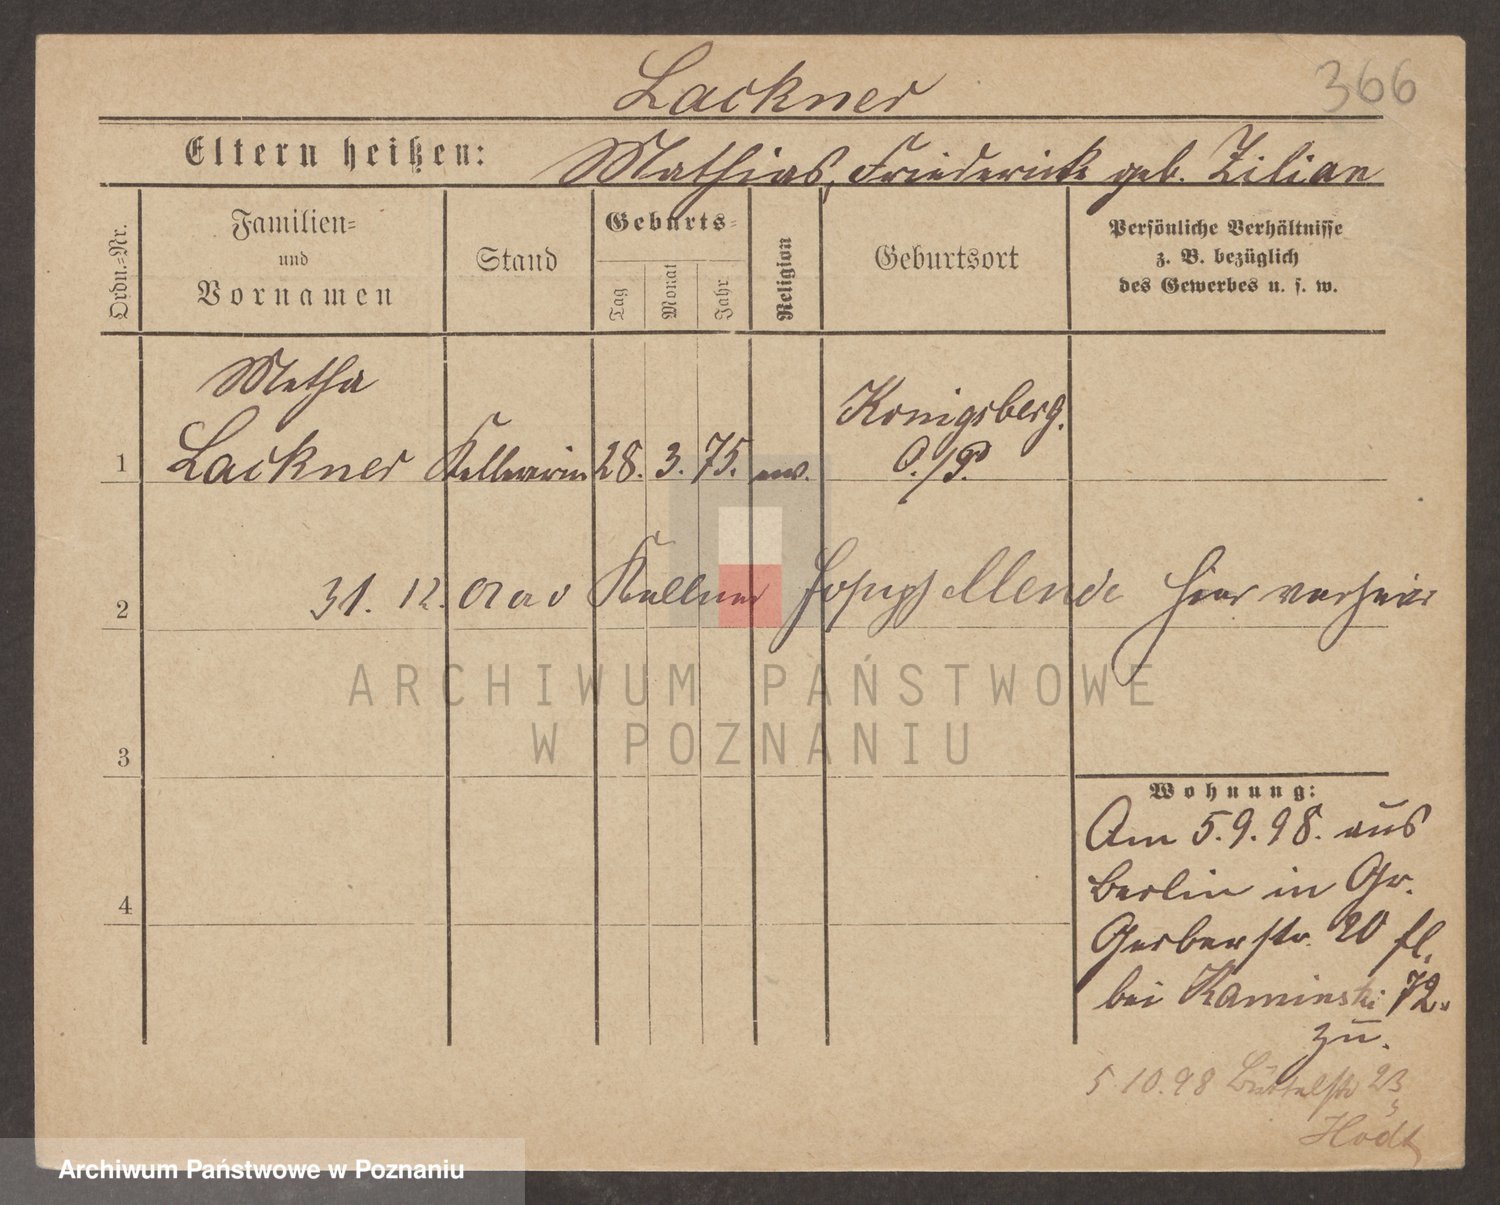 Lackner
366
Eltern heißen: Mathias, Friedericke geb. Zilian
Ordn.-Nr.
Familien-
und
Vornamen
Stand
Geburts-
Tag
Monat
Jahr
Religion
Geburtsort
Persönliche Verhältnisse
z. B. bezüglich
des Gewerbes u. s. w.
Metha
1 Lackner Kellnerin 28. 3. 75. ev. Königsberg.
O./P.
2 31. 12. Kellner Joseph Mende hier
ARCHIWUM PAŃSTWOWE
W POZNANIU
3
Wohnung:
Am 5.9.98. aus
Berlin in Gr.
4
Gerberstr. 20 fl.
bei Kaminski 72.
zu.
5 10.98 Büttelstr 23
Archiwum Państwowe w Poznaniu